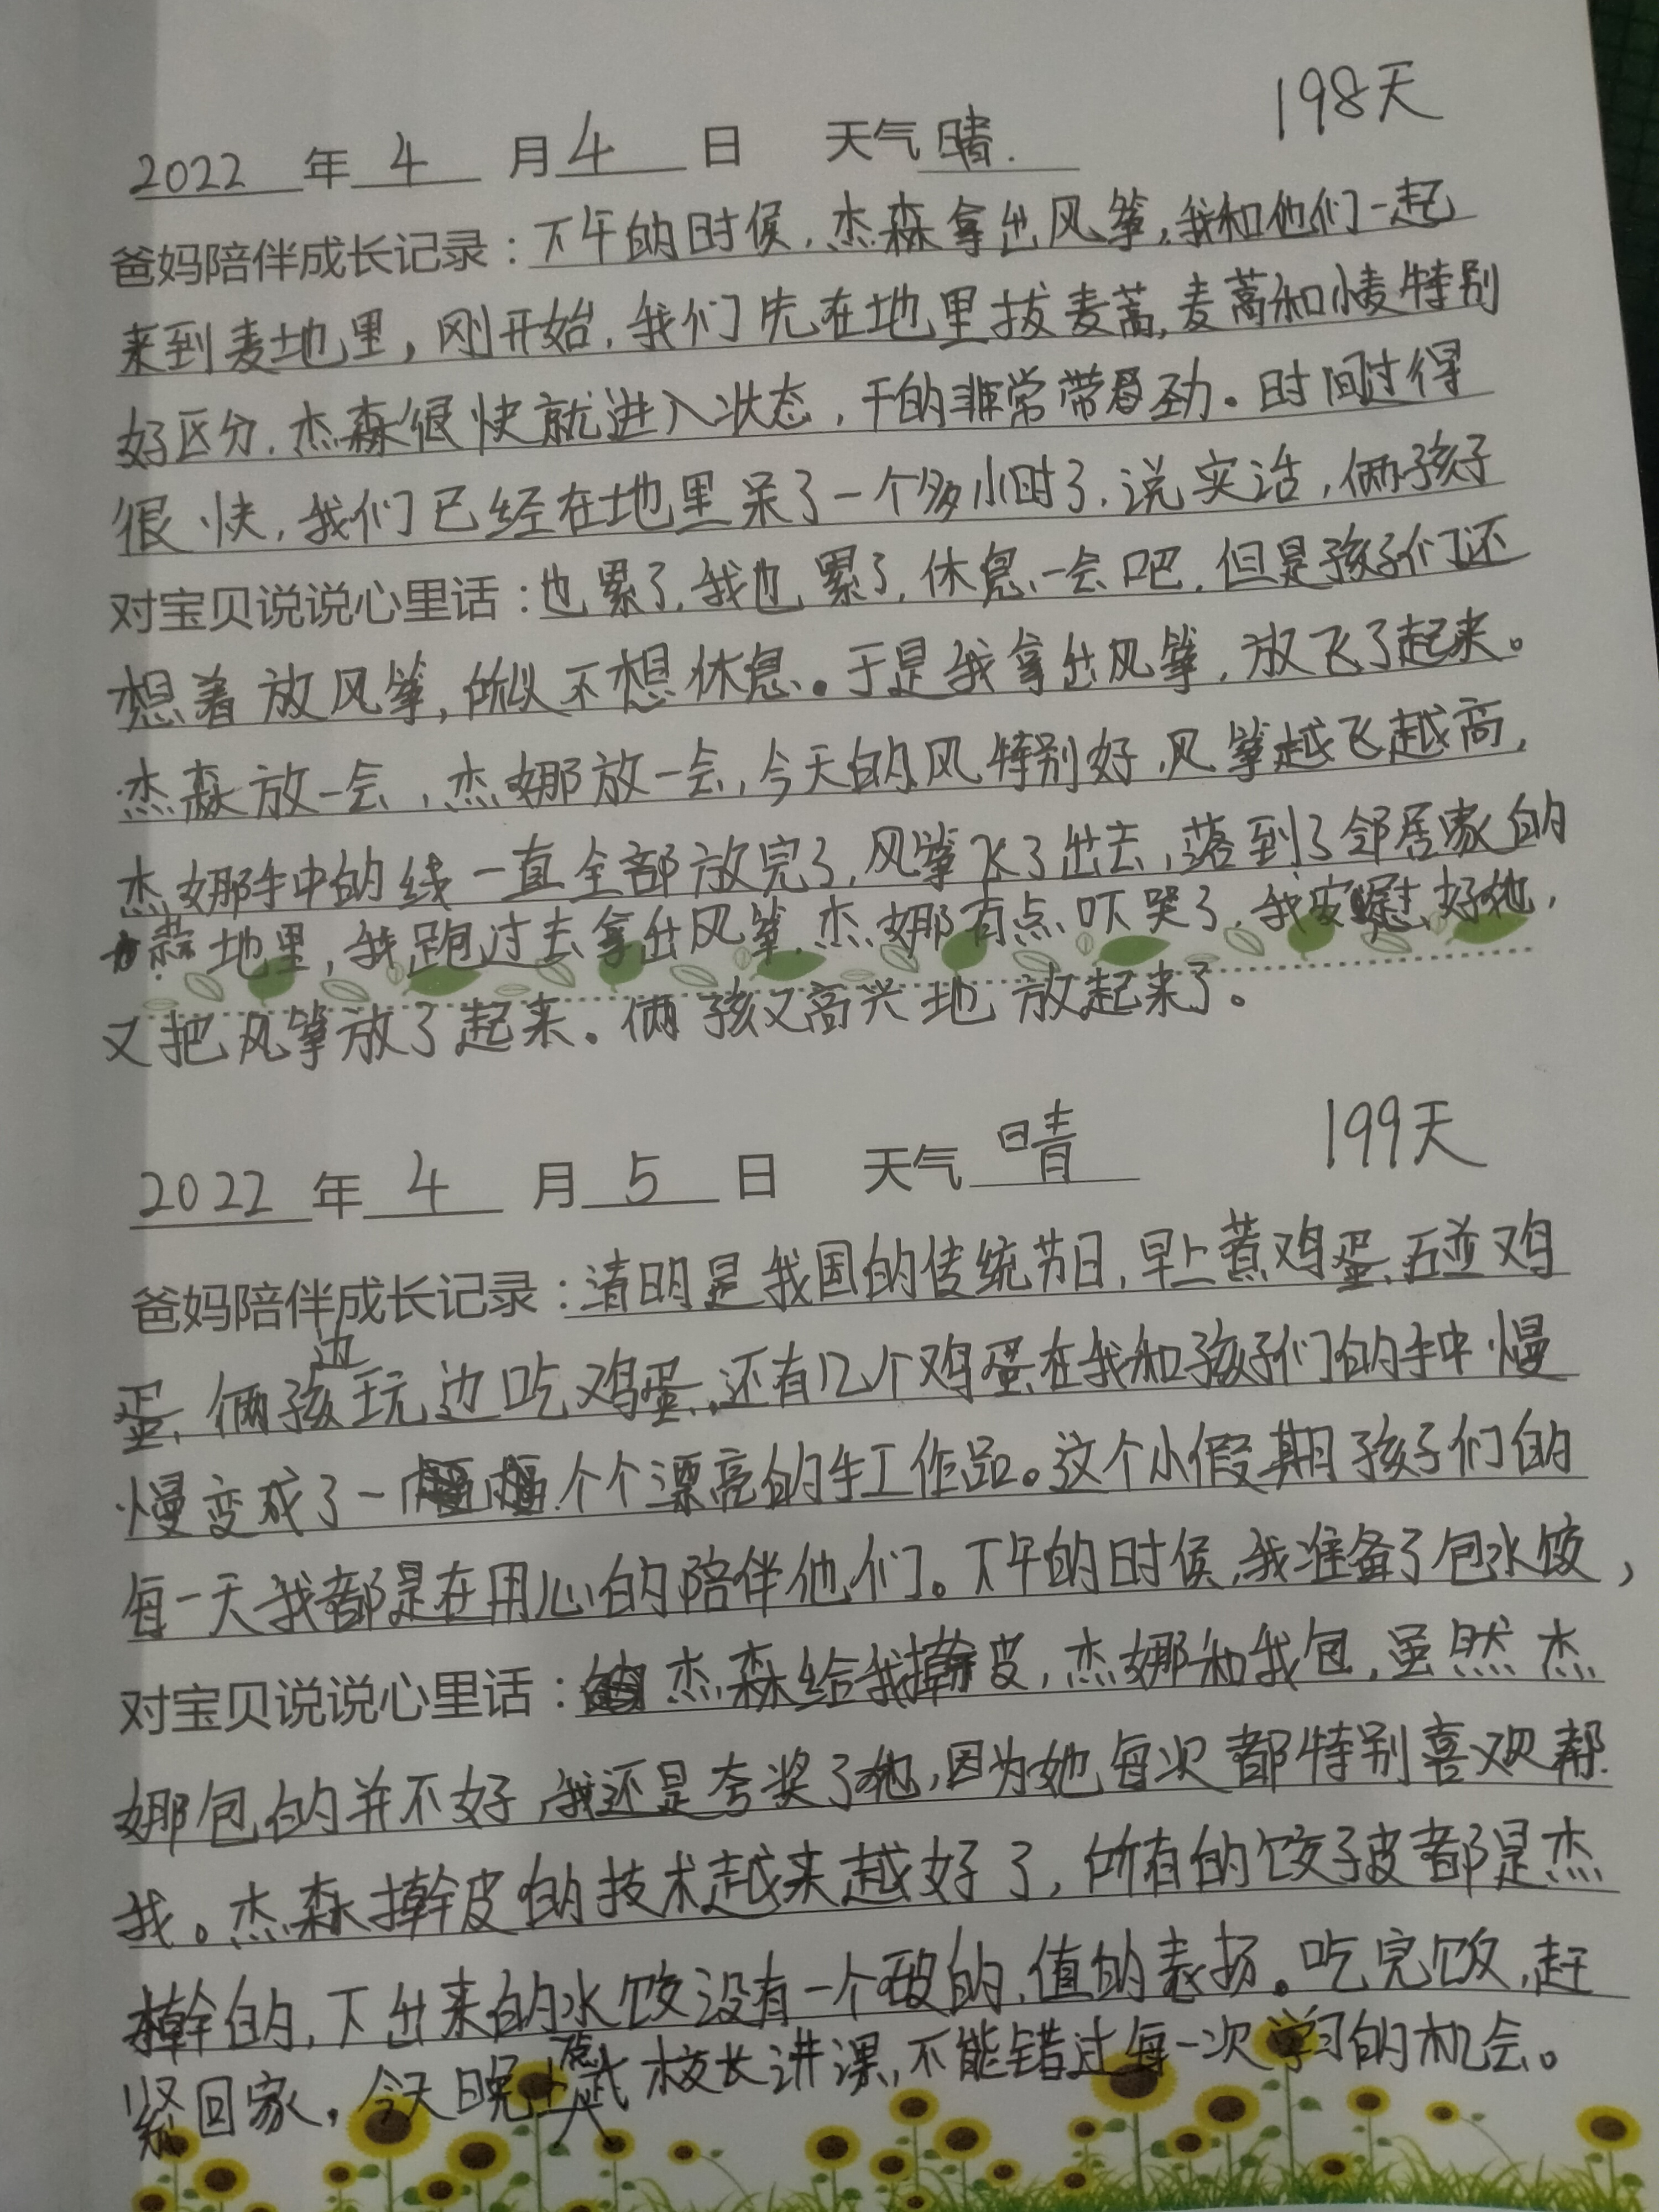 198天
2022 年 4 月 4 日 天气 晴.
爸妈陪伴成长记录：下午的时候，杰森拿出风筝，我和他们一起
来到麦地里，刚开始，我们先在地里拔麦蒿，麦蒿和小麦特别
好区分，杰森很快就进入状态，干的非常带劲。时间过得
很快，我们已经在地里呆了一个多小时了，说实话，俩孩子
对宝贝说说心里话：也累了，我也累了，休息一会吧，但是孩子们还
想着放风筝，所以不想休息。于是我拿出风筝，放飞了起来。
杰森放一会，杰娜放一会，今天的风特别好，风筝越飞越高，
杰娜手中的线一直全部放完了，风筝飞了出去，落到了邻居家的
蒜地里，我跑过去拿出风筝，杰娜有点吓哭了，我安慰好她，
又把风筝放了起来。俩孩又高兴地放起来了。
199天
2022 年 4 月 5 日 天气 晴
爸妈陪伴成长记录：清明是我国的传统节日，早上煮鸡蛋，碰鸡
蛋，俩孩边玩边吃鸡蛋，还有几个鸡蛋在我和孩子们的手中慢
慢变成了一个个漂亮的手工作品。这个小假期孩子们的
每一天我都是在用心的陪伴他们。下午的时候，我准备了包水饺，
对宝贝说说心里话：杰森给我擀皮，杰娜和我包，虽然杰
娜包的并不好，我还是夸奖了她，因为她每次都特别喜欢帮
我。杰森擀皮的技术越来越好了，所有的饺子皮都是杰
擀的，下出来的水饺没有一个破的，值的表扬。吃完饭，赶
紧回家，今天晚上 校长讲课，不能错过每一次学习的机会。